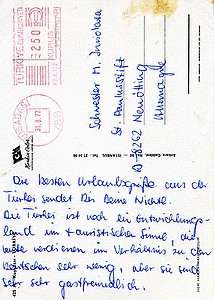 TÜRKİYE CUMHURİYETİ
250
KURUŞ
31.8.77
Schwester M.
St. Annastift
D-8262 Neuötting
Allemagne
Die besten Urlaubsgrüße aus der
Türkei sendet Dir Deine Nichte.
Die Türkei ist noch ein Entwicklungs-
land im touristischen Sinne, die
Leute verdienen im Verhältnis zu den
Deutschen sehr wenig, aber sie sind
sehr sehr gastfreundlich.